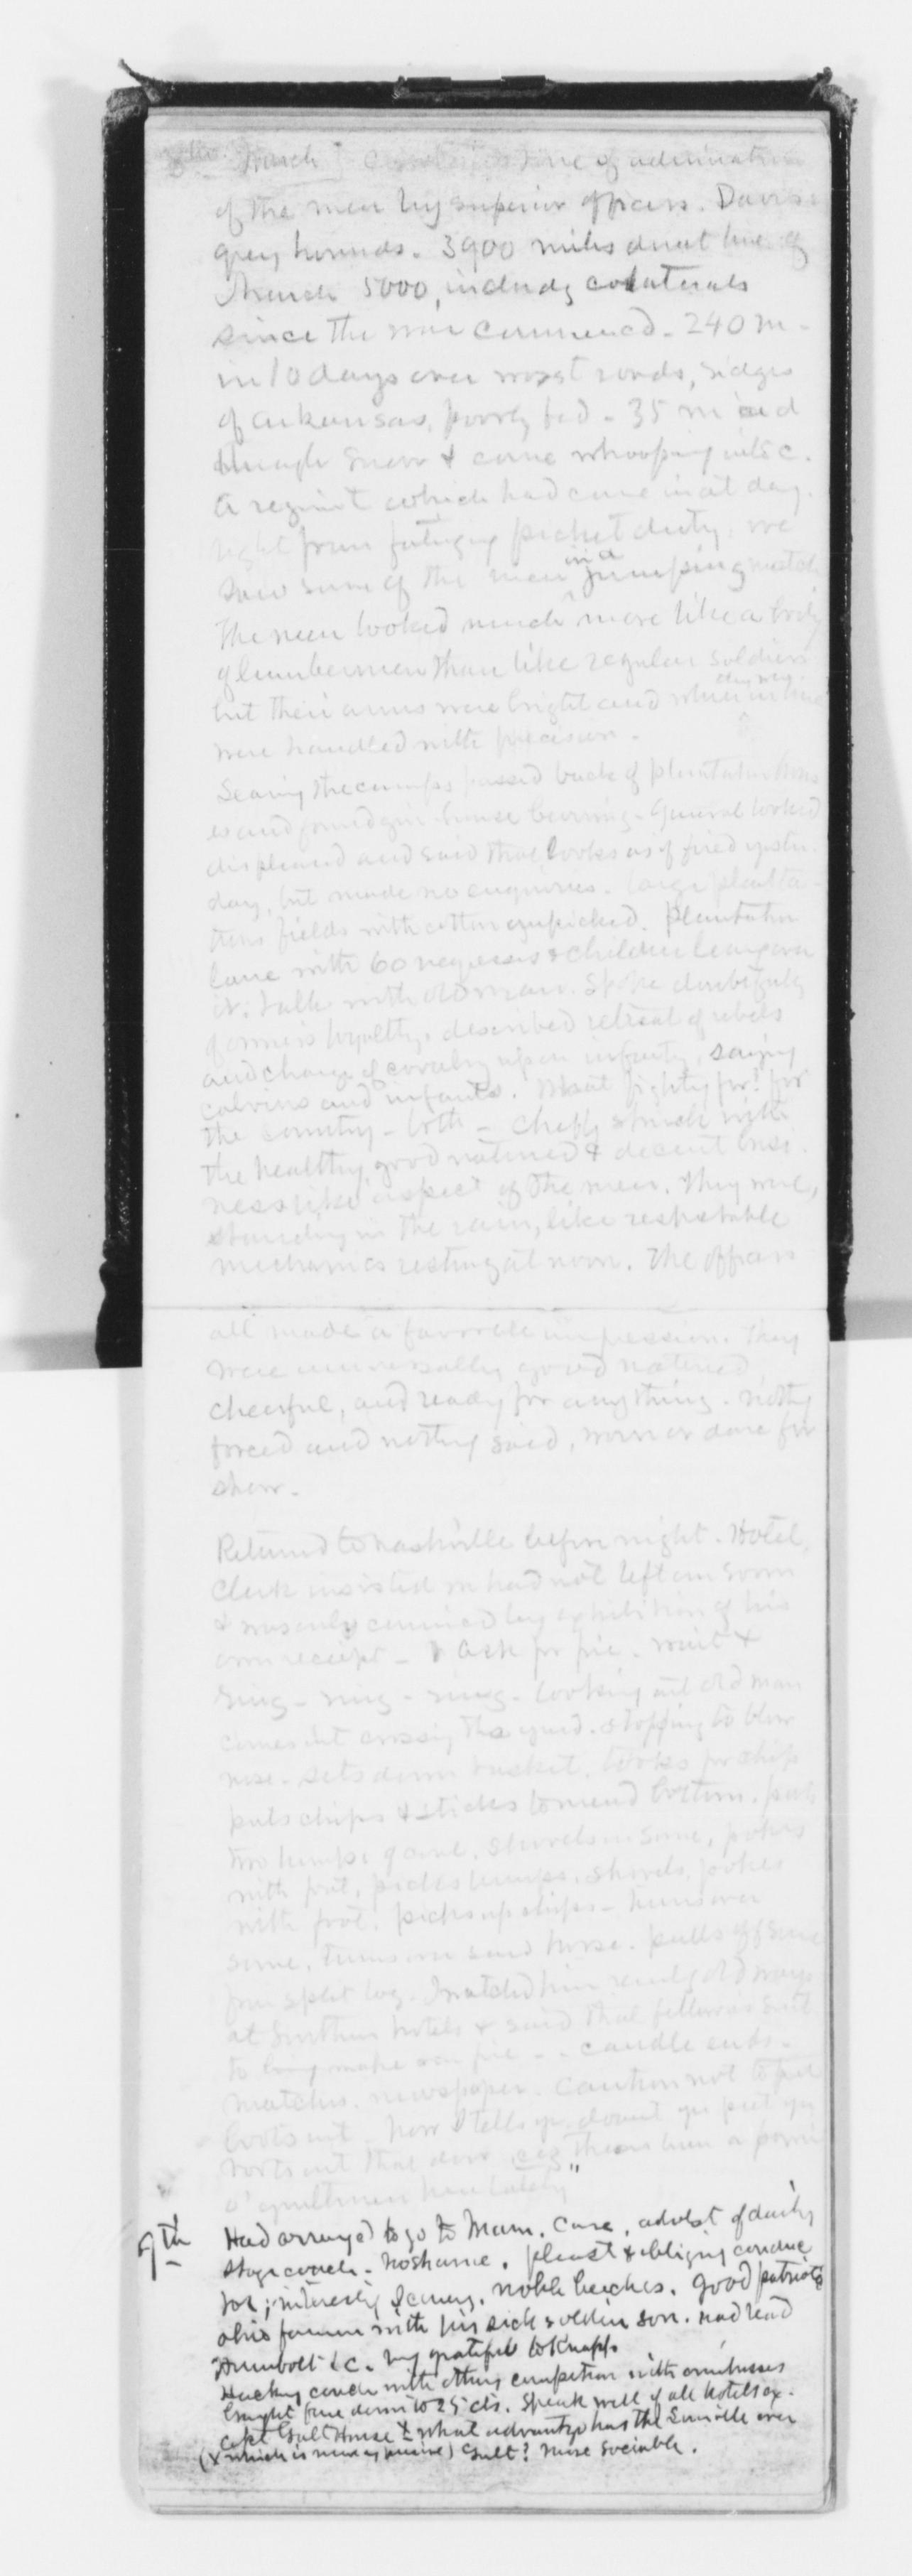 8th March tone of admiration
of the men by superior officers. Davis's
grey hounds. 3900 miles direct line of
March 5000, includg colaterals
since the war commenced. 240 m.
in 10 days over worst roads, ridges
of arkansas, poorly fed. 35 m
through snow & came whooping into c.
a regimt which had come in at day
right from fatiguing picket duty, we
saw some of the men in a jumping match
The men looked much more like a body
of lumbermen than like regular soldiers
but their arms were bright and when they were in line
were handled with precision.
Leaving the camps passed back of plantation hous
es and found gin-house burning. General looked
displeased and said that looks as if fired yester-
day, but made no enquiries. Large planta-
tions fields with cotton unpicked. Plantation
lane with 60 negresses & children leaning over
it. talk with old man. Spoke doubtfully
of loyalty. described retreat of rebels
and charge of cavalry upon infantry, saying
calvins and infants. What fighting for? for
the country - both - Chiefly struck with
the healthy, good natured & decent busi-
nesslike aspect of the men. They were,
standing in the rain, like respectable
mechanics resting at noon. The officers
all made a favorable impression. They
were universally good natured
cheerful, and ready for anything. nothg
forced and nothing said, worn or done for
show.
Returned to Nashville before night. Hotel
Clerk insisted we had not left our room
& was only convinced by exhibition of his
own receipt - I ask for fire. wait &
ring - ring - ring - Looking out old man
comes out crossing the yard. stopping to blow
nose. sets down basket. looks for chip
puts chips & sticks to mend bottom. puts
two lumps of coal, shovels in some, pokes
with foot, picks lumps, shovels, pokes
with foot. picks up chips - turns over
some, turns over saw horse. pulls off some
from split log. I watched him old ways
at Southern hotels & said that fellow is sent
to make our fire - - candle ends -
matches. newspaper. Caution not to put
boots out. Now I tells you, doant you put you
boots out that door, theas been a
o' gentlemen here lately"
9th Had arranged to go to Mam. Cave, advst of daily
stage coach. No shame. pleast & obliging conduc
tor; interestg scenery. noble beeches. Good patriotic
ohio farmer with his sick soldier son. Had read
Humbolt &c. very grateful to Knapp.
Hackney coach with others competion with omnibusses
brought fare down to 25 cts. Speak well of all hotels ex-
cept Galt House & what advantge has the Louisville over
(& which is newer) Galt? More sociable.